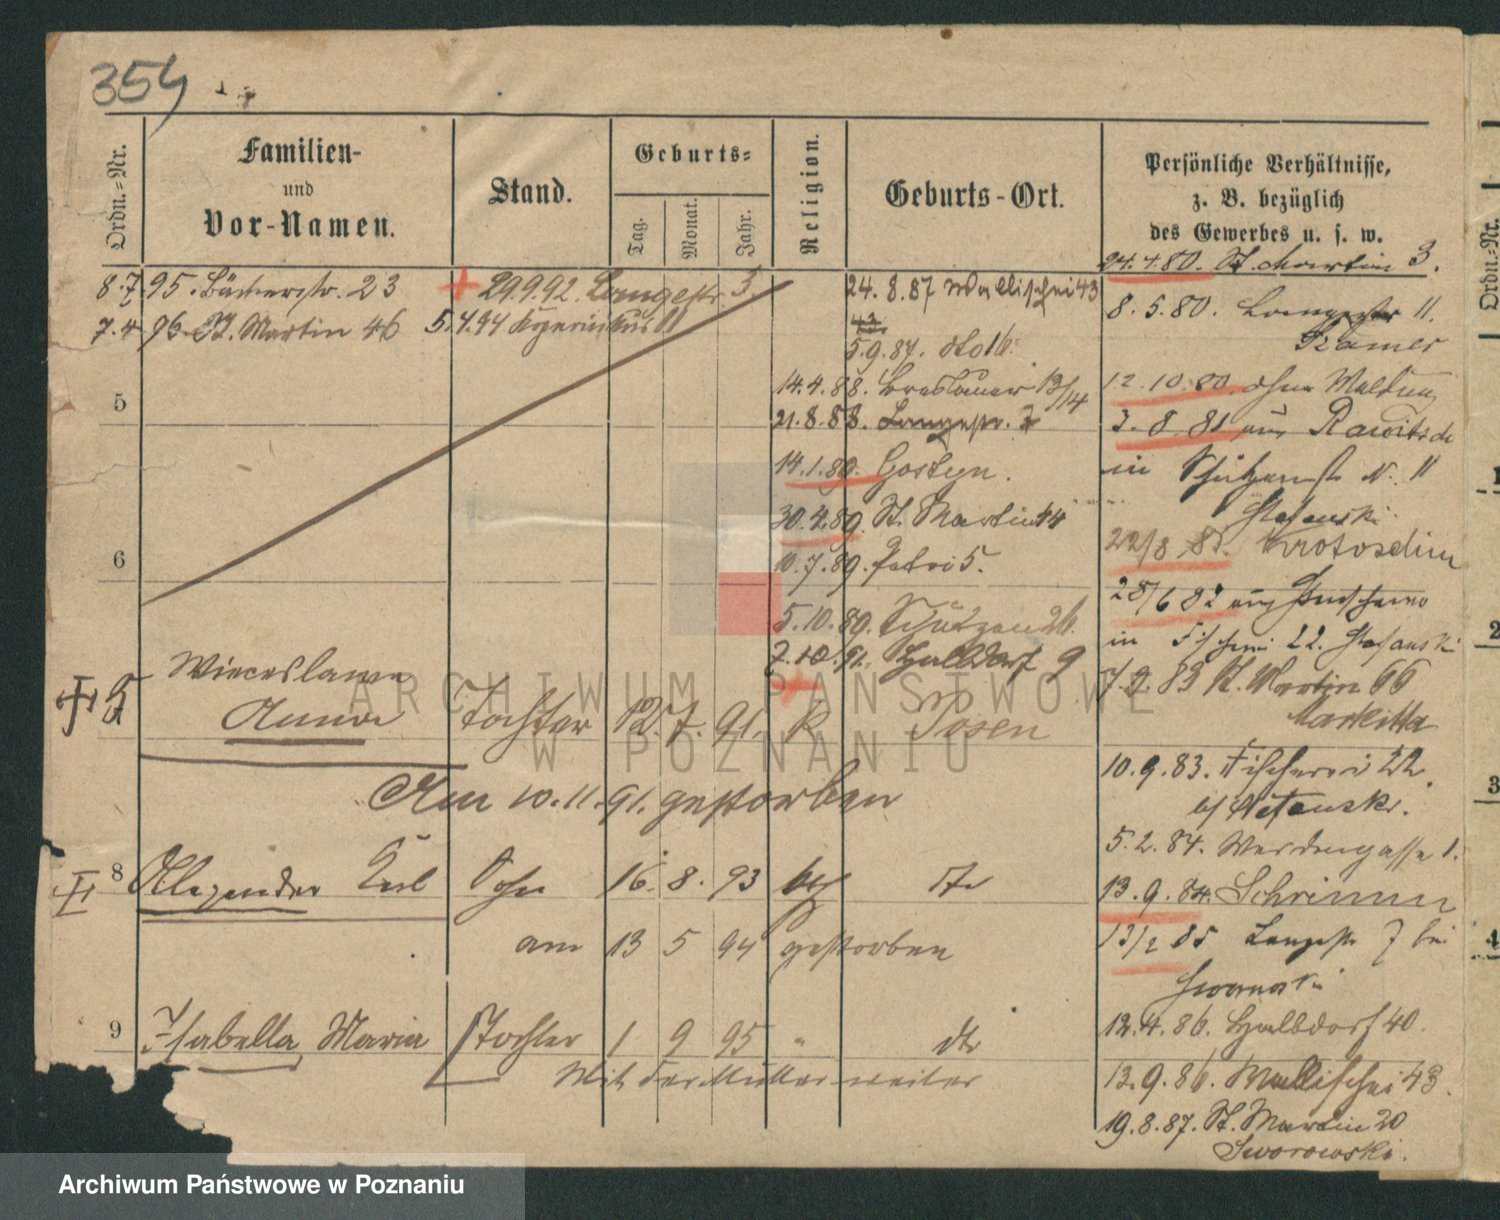 354
Ordn.-Nr.
Familien-
und
Vor-Namen.
Stand.
Geburts-
Tag.
Monat.
Jahr.
Religion.
Geburts-Ort.
Persönliche Verhältnisse,
z. B. bezüglich
des Gewerbes u. s. w.
8.7.95. Bäckerstr. 23
7.4.96. St. Martin 46
29.9.92. Langestr. 3.
5.4.94
24.8.87 Wallischei 43
5.9.87. dto 16.
14.4.88. Breslauer 13/14
21.8.88. Langestr. 3
14.1.89. Gostyn.
30.4.89. St. Martin 44
10.7.89. Petri 5.
5.10.89. Schützen 26.
2.10.91. Halbdorf 9
24.4.80. St. Martin 3.
8.5.80. Langestr 11.
Kramer
12.10.80. ohne Meldung
3.8.81 aus Rawitsch
in Schützenstr N. 11
Stefanski
22/8 81. Krotoschin
28/6 82 aus
in Fischerei 22. Stefanski
7.2.83 St. Martin 66
10.9.83. Fischerei 22.
b/ Stefanski.
5.2.84. Werdengasse 1.
13.9.84. Schrimm
13/2 85 Langestr 7 bei
12.4.86. Halbdorf 40.
12.9.86. Wallischei 43.
19.8.87. St. Martin 20
Sworowski.
5
6
Wieceslawa
Anna Tochter 12. 7. 91. k Posen
Am 10.11.91. gestorben
8 Alexander Karl Sohn 16. 8. 93 kth dto
am 13 5 94 gestorben
9 Isabella Maria Tochter 1 9 95 " dto
Mit der Mutter weiter
Ordn.-Nr.
1
2
3
4
ARCHIWUM PAŃSTWOWE
W POZNANIU
Archiwum Państwowe w Poznaniu